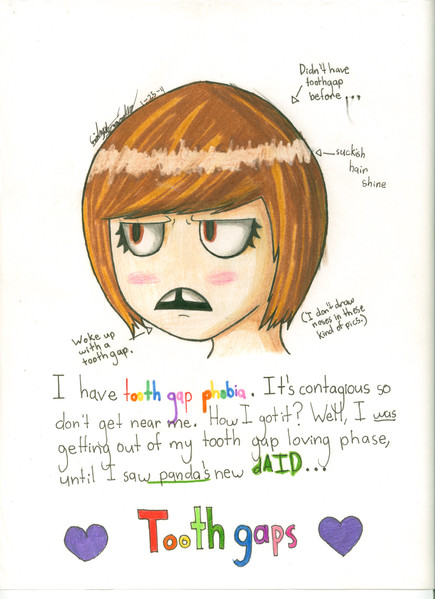 Didn't have
toothgap
before,...
1-25-11
suckish
hair
shine
Woke up
with a
tooth gap.
(I don't draw
noses in these
kind of pics.)
I have tooth gap phobia. It's contagious so
don't get near me. How I got it? Well, I was
getting out of my tooth gap loving phase,
until I saw panda's new dAID...
Tooth gaps